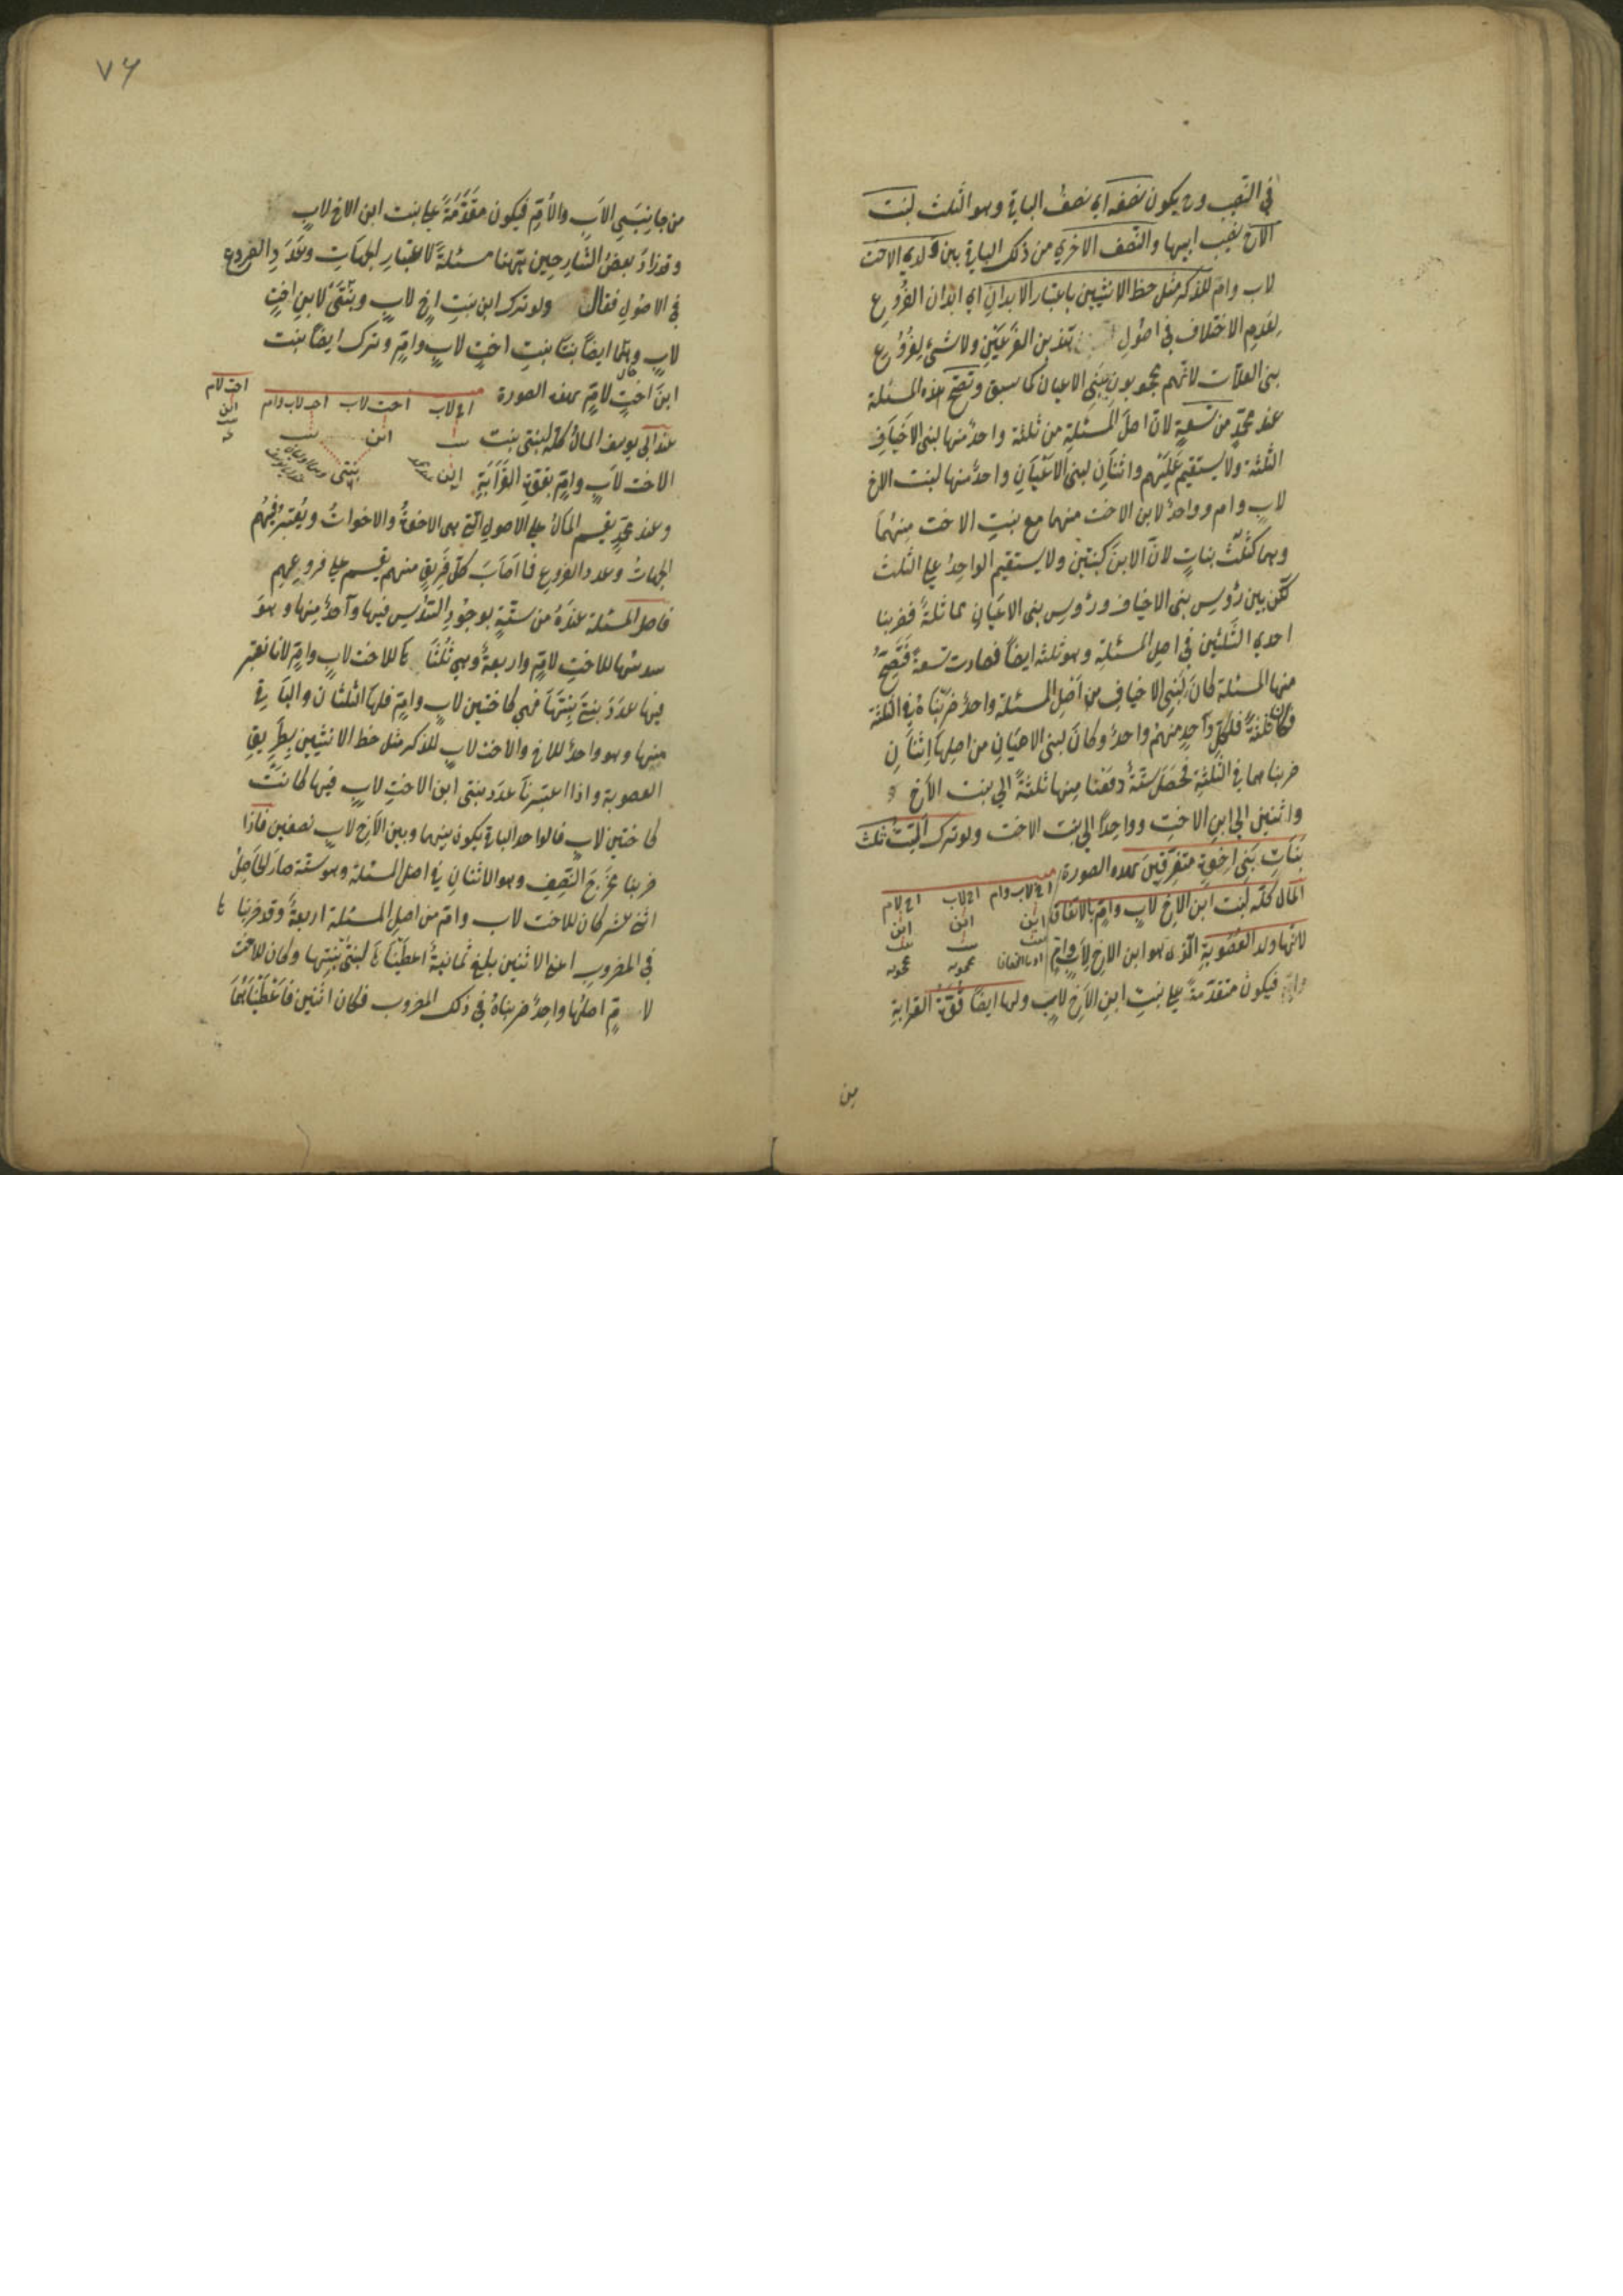 في النصيب وح يكون نصفه اي نصف الباقي وهو الثلث لبنت
الاخ نصيب ابيها والنصف الاخري من ذلك الباقي بين ولدي الاخت
لاب وام للذكر مثل حظ الانثيين باعتبار الابدان اي ابدان الفروع
لعدم الاختلاف في اصول هذين الفرعين ولا شئ لفروع
بني العلات لانهم محجوبون ببني الاعيان كما سبق وتصح هذه المسئلة
عند محمد من تسعة لان اصل المسئلة من ثلثة واحد منها لبني الاخياف
الثلثة ولا يستقيم عليهم واثنان لبني الاعيان واحد منها لبنت الاخ
لاب وام وواحد لابن الاخت منهما مع بنت الاخت منهما
وهما كثلث بنات لان الابن كبنتين ولا يستقيم الواحد علي الثلث
لكن بين رؤس بني الاخياف ورؤس بني الاعيان مماثلة فضربنا
احدي الثلثين في اصل المسئلة وهو ثلثة ايضا فصارت تسعة فتصح
منها المسئلة كان لبني الاخياف من اصل المسئلة واحد ضربناه في الثلثة
فكان ثلثة فلكل واحد منهم واحد وكان لبني الاعيان من اصلها اثنان
ضربناهما في الثلثة فحصل ستة دفعنا منها ثلثة الي بنت الاخ
واثنين الي ابن الاخت وواحدا الي بنت الاخت ولو ترك الميت ثلث
بنات بني اخوة متفرقين بهذه الصورة
اخ لاب وام اخ لاب اخ لام
المال كله لبنت ابن الاخ لاب وام بالاتفاق
ابن ابن ابن
بنت بنت بنت
لانها ولد العصوبة الذي هو ابن الاخ لاب وام
محجوبه محجوبه
فيكون متقدمة علي بنت ابن الاخ لاب ولها ايضا قوة القرابة
من
٧٦
من جانبي الاب والام فيكون مقدمة علي بنت ابن الاخ لاب
وقد زاد بعض الشارحين ههنا مسئلة لاعتبار الجهات وعدد الفروع
في الاصول فقال ولو ترك ابن بنت اخ لاب وبنتي لابن اخت
لاب وهما ايضا بنتا بنت اخت لاب وام وترك ايضا بنت
ابن اخت لام بهذه الصورة
اخ لاب اخت لاب اخت لاب وام اخت لام
عند ابي يوسف المال كله لبنتي بنت
بنت ابن بنت ابن
الاخت لاب وام بقوة القرابة
ابن بنتي بنت
وعند محمد يقسم المال علي الاصول التي هي الاخوة والاخوات ويعتبر فيهم
الجهات وعدد الفروع فما اصاب كل فريق منهم يقسم علي فروعهم
فاصل المسئلة عنده من ستة بوجود السدس فيها واحد منها وهو
سدسها للاخت لام واربعة وهي ثلثاها للاخت لاب وام لانا نعتبر
فيها عدد بنتي بنتها فهي كاختين لاب وام فلها الثلثان والباقي
منها وهو واحد للاخ والاخت لاب للذكر مثل حظ الانثيين بطريق
العصوبة واذا اعتبرنا عدد بنتي ابن الاخت لاب فيها كانت
كاختين لاب فالواحد الباقي يكون بينهما وبين الاخ لاب نصفين فاذا
ضربنا مخرج النصف وهو الاثنان في اصل المسئلة وهو ستة صار الحاصل
اثني عشر كان للاخت لاب وام من اصل المسئلة اربعة وقد ضربنا ها
في المضروب اعني الاثنين بلغ ثمانية اعطيناها لبنتي بنتها وكان للاخت
لام اصلها واحد ضربناه في ذلك المضروب فكان اثنين فاعطيناهما